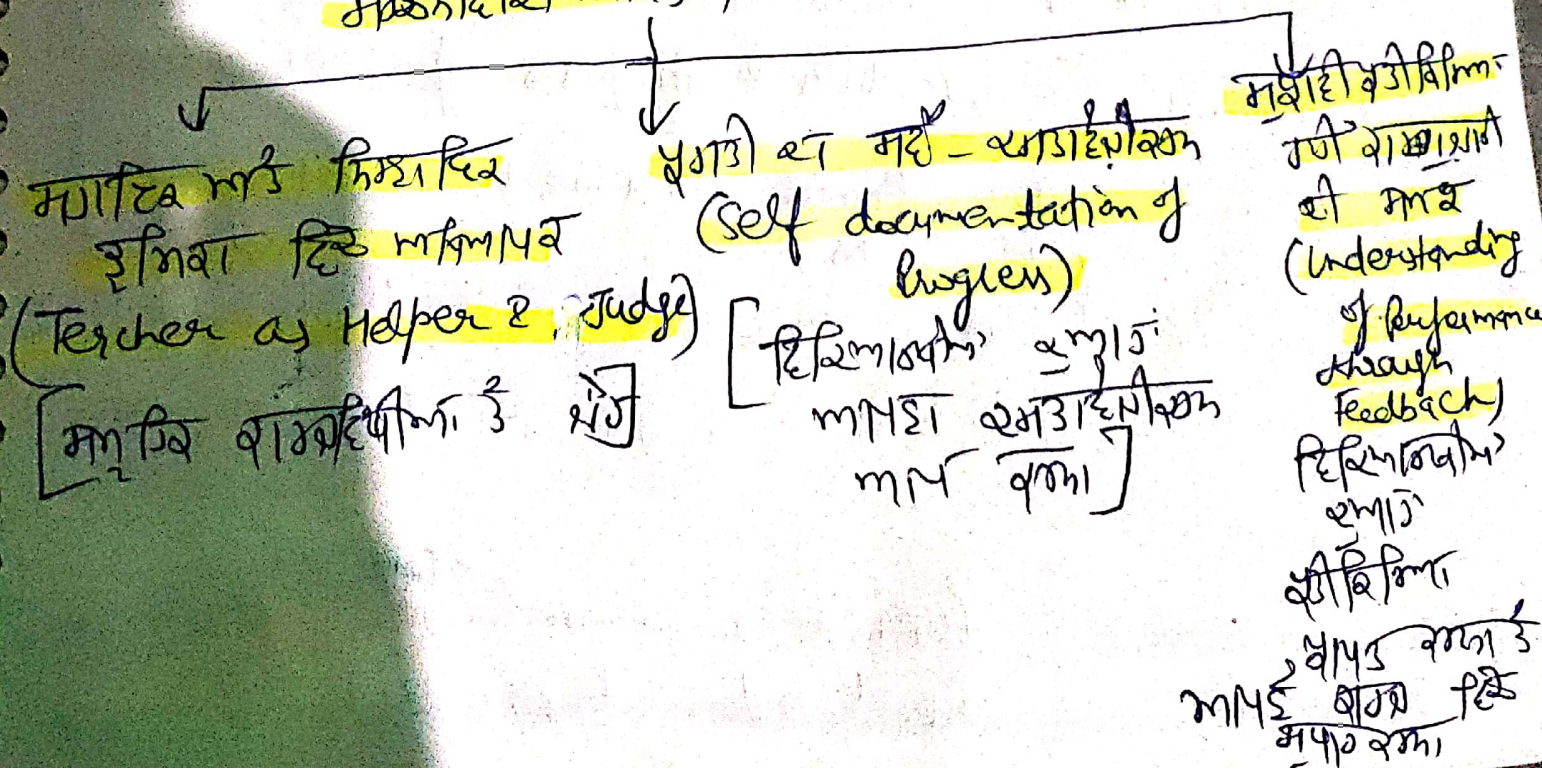 ਸਹਾਇਕ ਅਤੇ ਨਿਰਣਾਇਕ
ਭੂਮਿਕਾ ਵਿੱਚ ਅਧਿਆਪਕ
(Teacher as Helper & Judge)
[ਸਮੂਹਿਕ ਕਾਰਜਵਿਧੀਆਂ ਤੇ ਜ਼ੋਰ]
ਪ੍ਰਗਤੀ ਦਾ ਸਵੈ-ਦਸਤਾਵੇਜ਼ੀਕਰਨ
(Self documentation of
Progress)
[ਵਿਦਿਆਰਥੀਆਂ ਦੁਆਰਾ
ਆਪਣਾ ਦਸਤਾਵੇਜ਼ੀਕਰਨ
ਆਪ ਕਰਨਾ]
ਪ੍ਰਤੀਕਿਰਿਆ
ਦੀ ਸਮਝ
(Understanding
of Performance
through
Feedback)
ਵਿਦਿਆਰਥੀਆਂ
ਦੁਆਰਾ
ਪ੍ਰਤੀਕਿਰਿਆ
ਪ੍ਰਾਪਤ ਕਰਨਾ ਤੇ
ਆਪਣੇ ਕਾਰਜ ਵਿੱਚ
ਸੁਧਾਰ ਕਰਨਾ